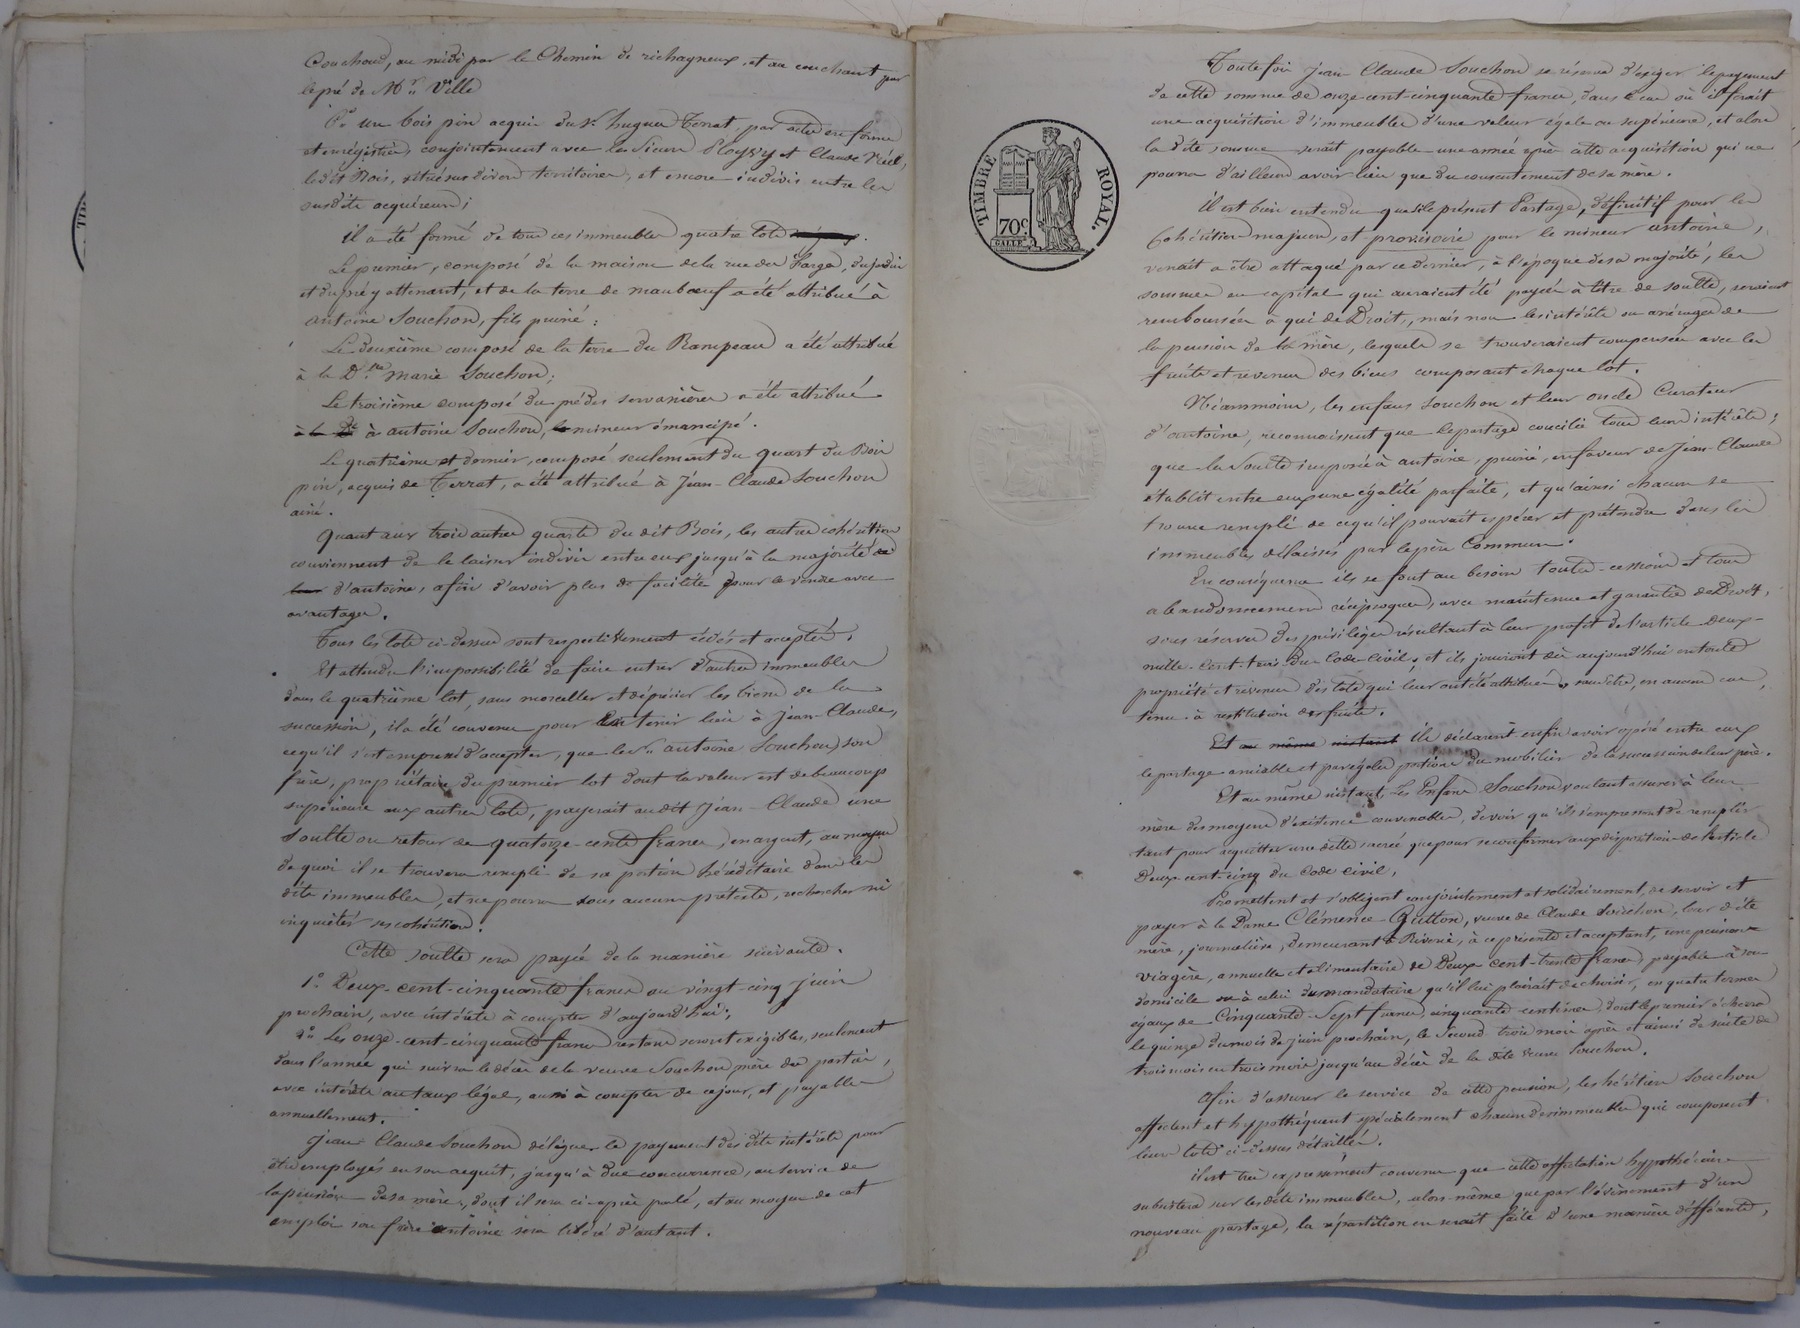 Couchoud, au midi par le Chemin de richagneux, et au couchant par
le pré de Mr. Ville
un bois pin acquis du sr. hugues Terrat, par acte en forme
et enrégistré, conjointement avec les Sieurs et Claude
ledit Bois, situé sur divers territoires, et encore indivis entre les
susdits acquéreurs;
il a été formé de tous ces immeubles quatre lots
Le premier, composé de la maison de la rue du Farge, du jardin
et du pré y attenant, et de la terre de maubœuf a été attribué à
antoine Souchon, fils puiné:
Le deuxième composé de la terre du Rampeau a été attribué
à la Dlle marie Souchon;
Le troisième composé du pré des servanières a été attribué
à antoine Souchon, mineur émancipé.
Le quatrième et dernier, composé seulement du quart du Bois
pin, acquis de Terrat, a été attribué à Jean-Claude Souchon
ainé.
Quant aux trois autres quarts du dit Bois, les autres cohéritiers
conviennent de le laisser indivis entre eux jusqu'à la majorité
d'antoine, afin d'avoir plus de facilité pour le vendre avec
avantages.
Tous les lots ci-dessus sont respectivement cédés et acceptés.
Et attendu l'impossibilité de faire entrer d'autres immeubles
dans le quatrième lot, sans morceller et déprécier les biens de la
succession, il a été convenu pour en tenir lieu à Jean-Claude,
ce qu'il s'est empressé d'accepter, que le sr. antoine Souchon, son
frère, propriétaire du premier lot dont la valeur est de beaucoup
supérieure aux autres lots, payerait au dit Jean-Claude une
soulte ou retour de quatorze-cents francs, en argent, au moyen
de quoi il se trouvera rempli de sa portion héréditaire dans les
dits immeubles, et ne pourra sous aucun prétexte, rechercher ni
inquiéter ses cohéritiers.
Cette soulte sera payée de la manière suivante.
1° Deux-cent-cinquante francs au vingt-cinq juin
prochain, avec intérêts à compter d'aujourd'hui;
2° Les onze-cent-cinquante francs restans seront exigibles, seulement
dans l'année qui suivra le décès de la veuve Souchon mère des parties,
avec intérêts au taux légal, aussi à compter de ce jour, et payables
annuellement.
Jean-Claude Souchon délègue le payement des dits intérêts pour
être employés en son acquit, jusqu'à due concurrence, au service de
la pension de sa mère, dont il sera ci-après parlé, et au moyen de cet
emploi son frère antoine sera libéré d'autant.
TIMBRE ROYAL.
70c
Toutefois Jean-Claude Souchon se réserve d'exiger le payement
de cette somme de onze-cent-cinquante francs, dans le cas où il ferait
une acquisition d'immeubles d'une valeur égale ou supérieure, et alors
la dite somme serait payable une année après cette acquisition qui ne
pourra d'ailleurs avoir lieu que du consentement de sa mère.
Il est bien entendu que si le présent Partage, définitif pour les
Cohéritiers majeurs, et provisoire pour le mineur antoine,
venait a être attaqué par ce dernier, à l'époque de sa majorité, les
sommes en capital qui auraient été payées à titre de soulte, seraient
remboursées à qui de Droit, mais non les intérêts ou arrérages de
la pension de la mère, lesquels se trouveraient compensés avec les
fruits et revenus des biens composant chaque lot.
Néanmoins, les enfans Souchon et leur oncle Curateur
d'antoine, reconnaissent que le partage concilie tous leurs intérêts;
que la Soulte imposée à antoine, puiné, en faveur de Jean-Claude
établit entre eux une égalité parfaite, et qu'ainsi chacun se
trouve rempli de ce qu'il pouvait espérer et prétendre dans les
immeubles délaissés par le père Commun.
En conséquence ils se font au besoin toutes cessions et tous
abandonnemens réciproques, avec maintenue et garantie de Droit,
sous réserves des priviléges résultant à leur profit de l'article Deux-
mille-cent-trois du Code civil; et ils jouiront dès aujourd'hui en toute
propriété et revenus des lots qui leur ont été attribués, sans être, en aucun cas,
tenus à restitution des fruits.
Et au même instant Ils déclarent enfin avoir opéré entre eux
le partage amiable et par égales portions du mobilier de la succession de leur père.
Et au même instant Les Enfans Souchon voulant assurer à leur
mère des moyens d'existence convenables, devoir qu'ils s'empressent de remplir
tant pour acquitter une dette sacrée que pour se conformer aux dispositions de l'article
Deux-cent-cinq du Code civil,
Promettent et s'obligent conjointement et solidairement, de servir et
payer à la Dame Clémence Guitton, veuve de Claude Souchon, leur dite
mère, journalière, demeurant à Riverie, à ce présente et acceptant, une pension
viagère, annuelle et alimentaire de Deux-cent-trente francs, payable à son
domicile ou à celui du mandataire qu'il lui plairait de choisir, en quatre termes
égaux de Cinquante-Sept francs, cinquante centimes, dont le premier échoira
le quinze du mois de juin prochain, le Second trois mois après et ainsi de suite de
trois mois en trois mois jusqu'au décès de la dite veuve Souchon.
Afin d'assurer le service de cette pension, les héritiers Souchon
affectent et hypothéquent spécialement chacun des immeubles qui composent
leurs lots ci-dessus détaillés.
il est très expressément convenu que cette affectation hypothécaire
subsistera sur les dits immeubles, alors même que par l'évènement d'un
nouveau partage, la répartition en serait faite d'une manière différente,